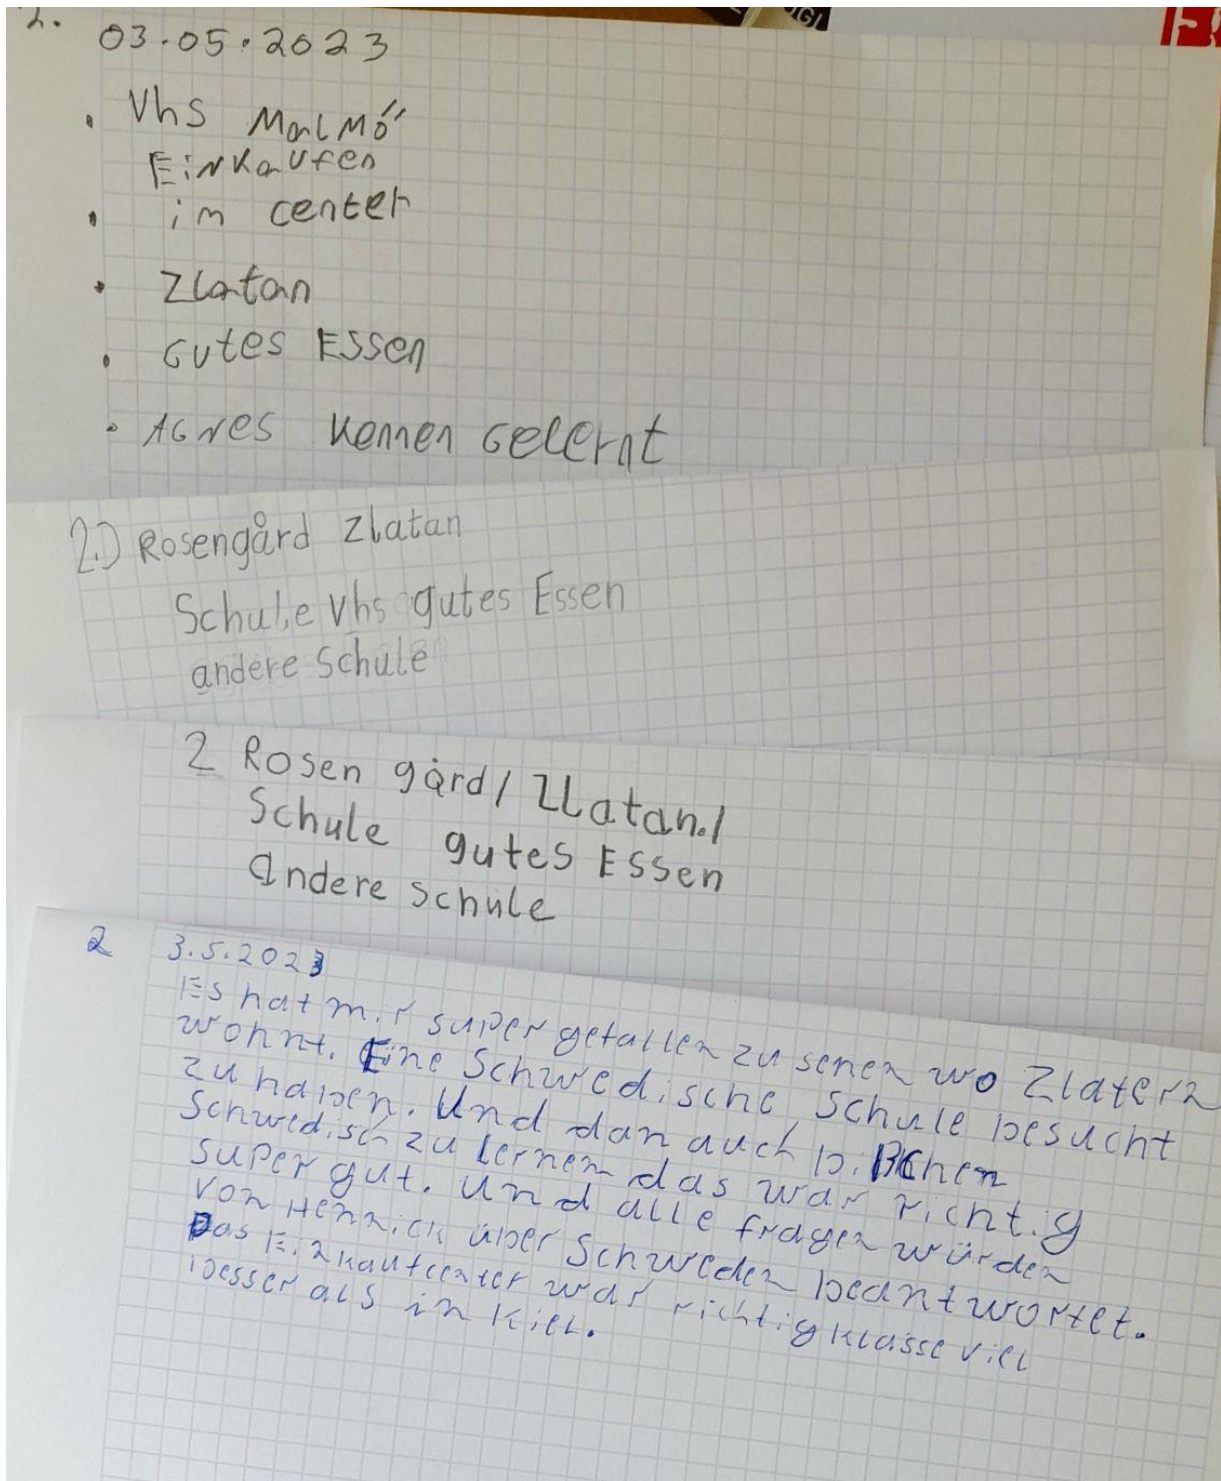 2.
03.05.2023
• Vhs Malmö
Einkaufen
• im center
• Zlatan
• Gutes Essen
• AGNes kennen Gelernt
2.) Rosengård Zlatan
Schule Vhs gutes Essen
andere Schule
2 Rosen gård / Zlatan./
Schule gutes Essen
andere schule
2 3.5.2023
Es hat mir super gefallen zu sehen wo Zlatern
wohnt. Eine Schwedische Schule besucht
zu haben. Und dan auch bißchen
Schwedisch zu lernen das war richtig
super gut. Und alle fragen würden
von Hennick über Schweden beantwortet.
Das Einkaufcenter war richtig klasse viel
besser als in Kiel.